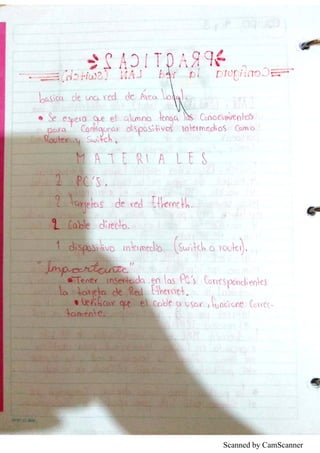 PRACTICA 2
Configura la red LAN (Switch).
basica de una red de Área Local.
• Se espera que el alumno tenga los Conocimientos
para Configurar dispositivos intermedios Como
Router y Switch.
MATERIALES
2 PC'S.
2 tarjetas de red Etherneth.
2 Cable directo.
1 dispositivo intermedio (Switch o router).
"Importante"
• Tener insertada en las PC's Correspondientes
la tarjeta de Red Ethernet.
• Verificar que el Cable a usar, funcione Corres-
tamente.
Scanned by CamScanner